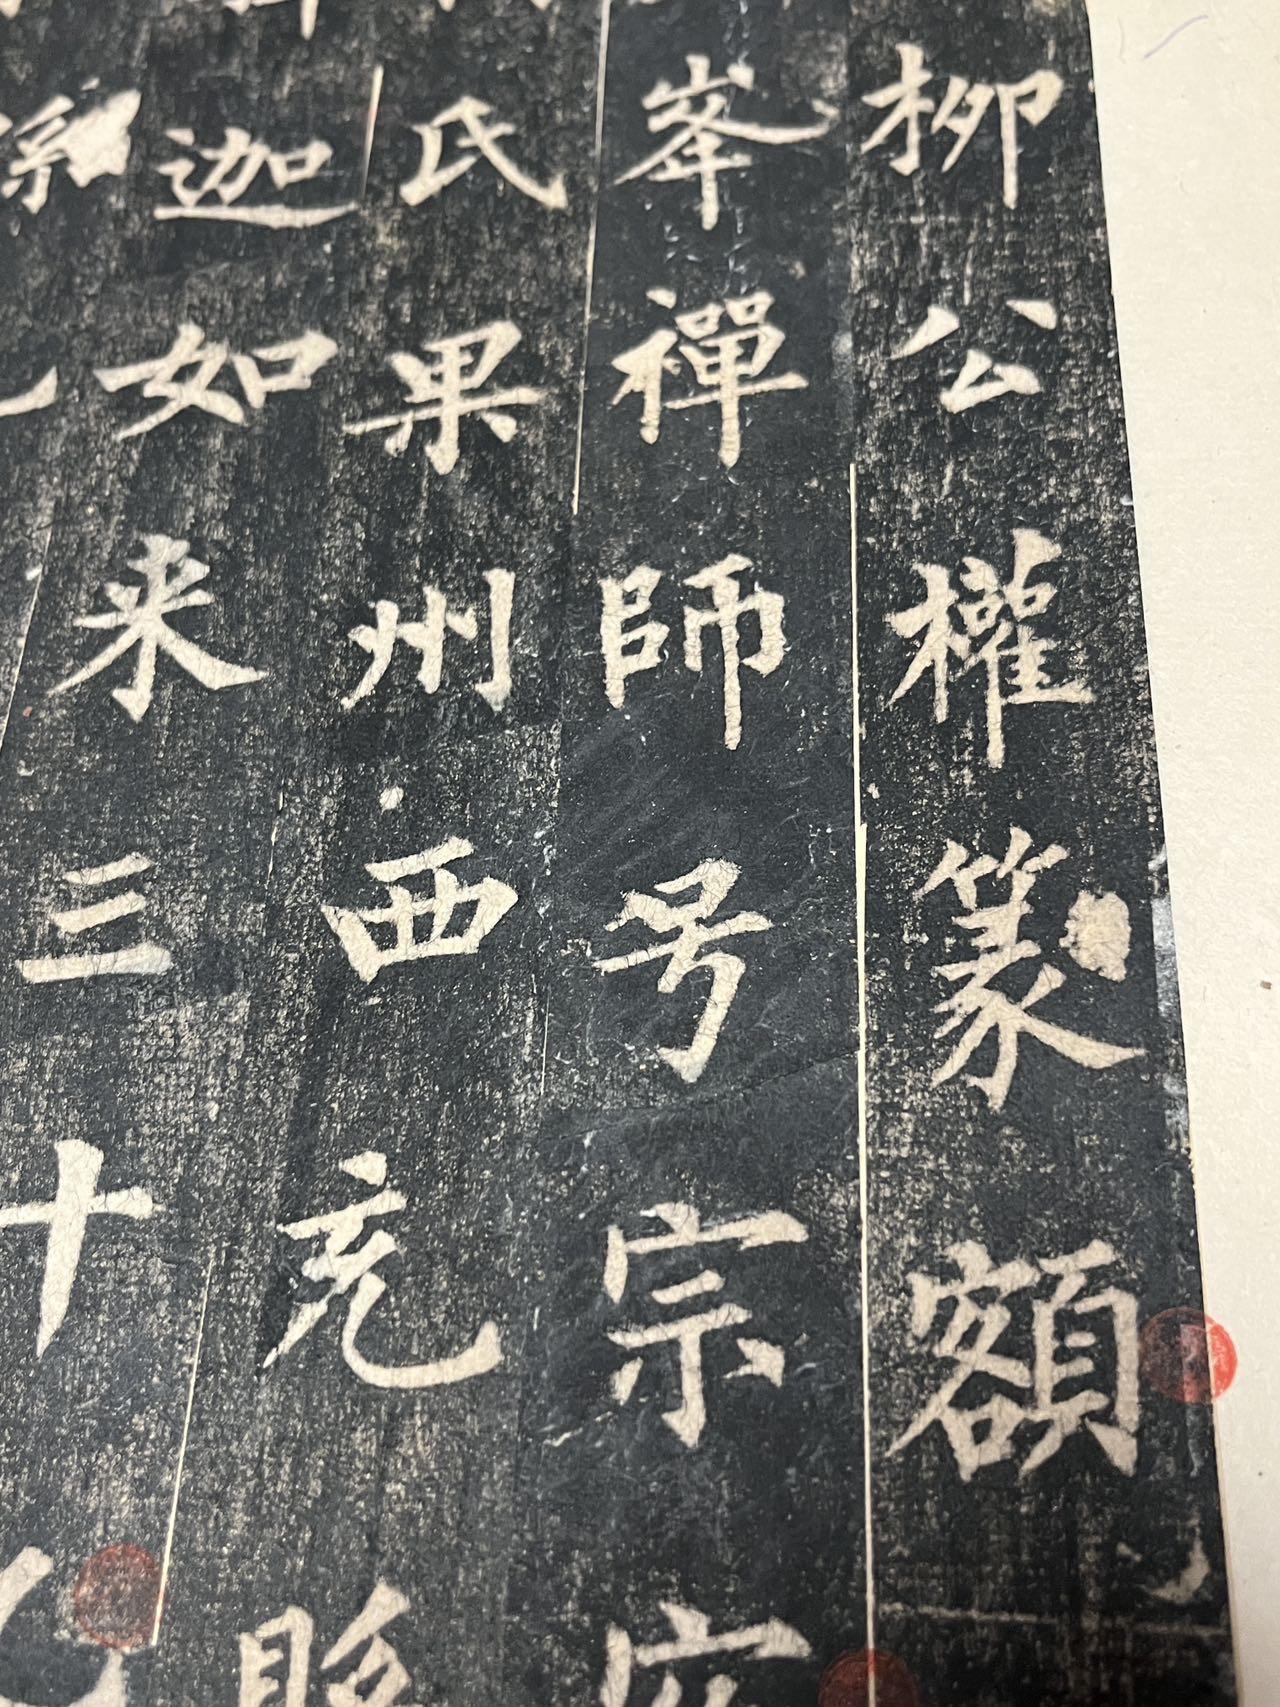 柳公權篆額
峯禪師号宗
氏果州西充
迦如来三十